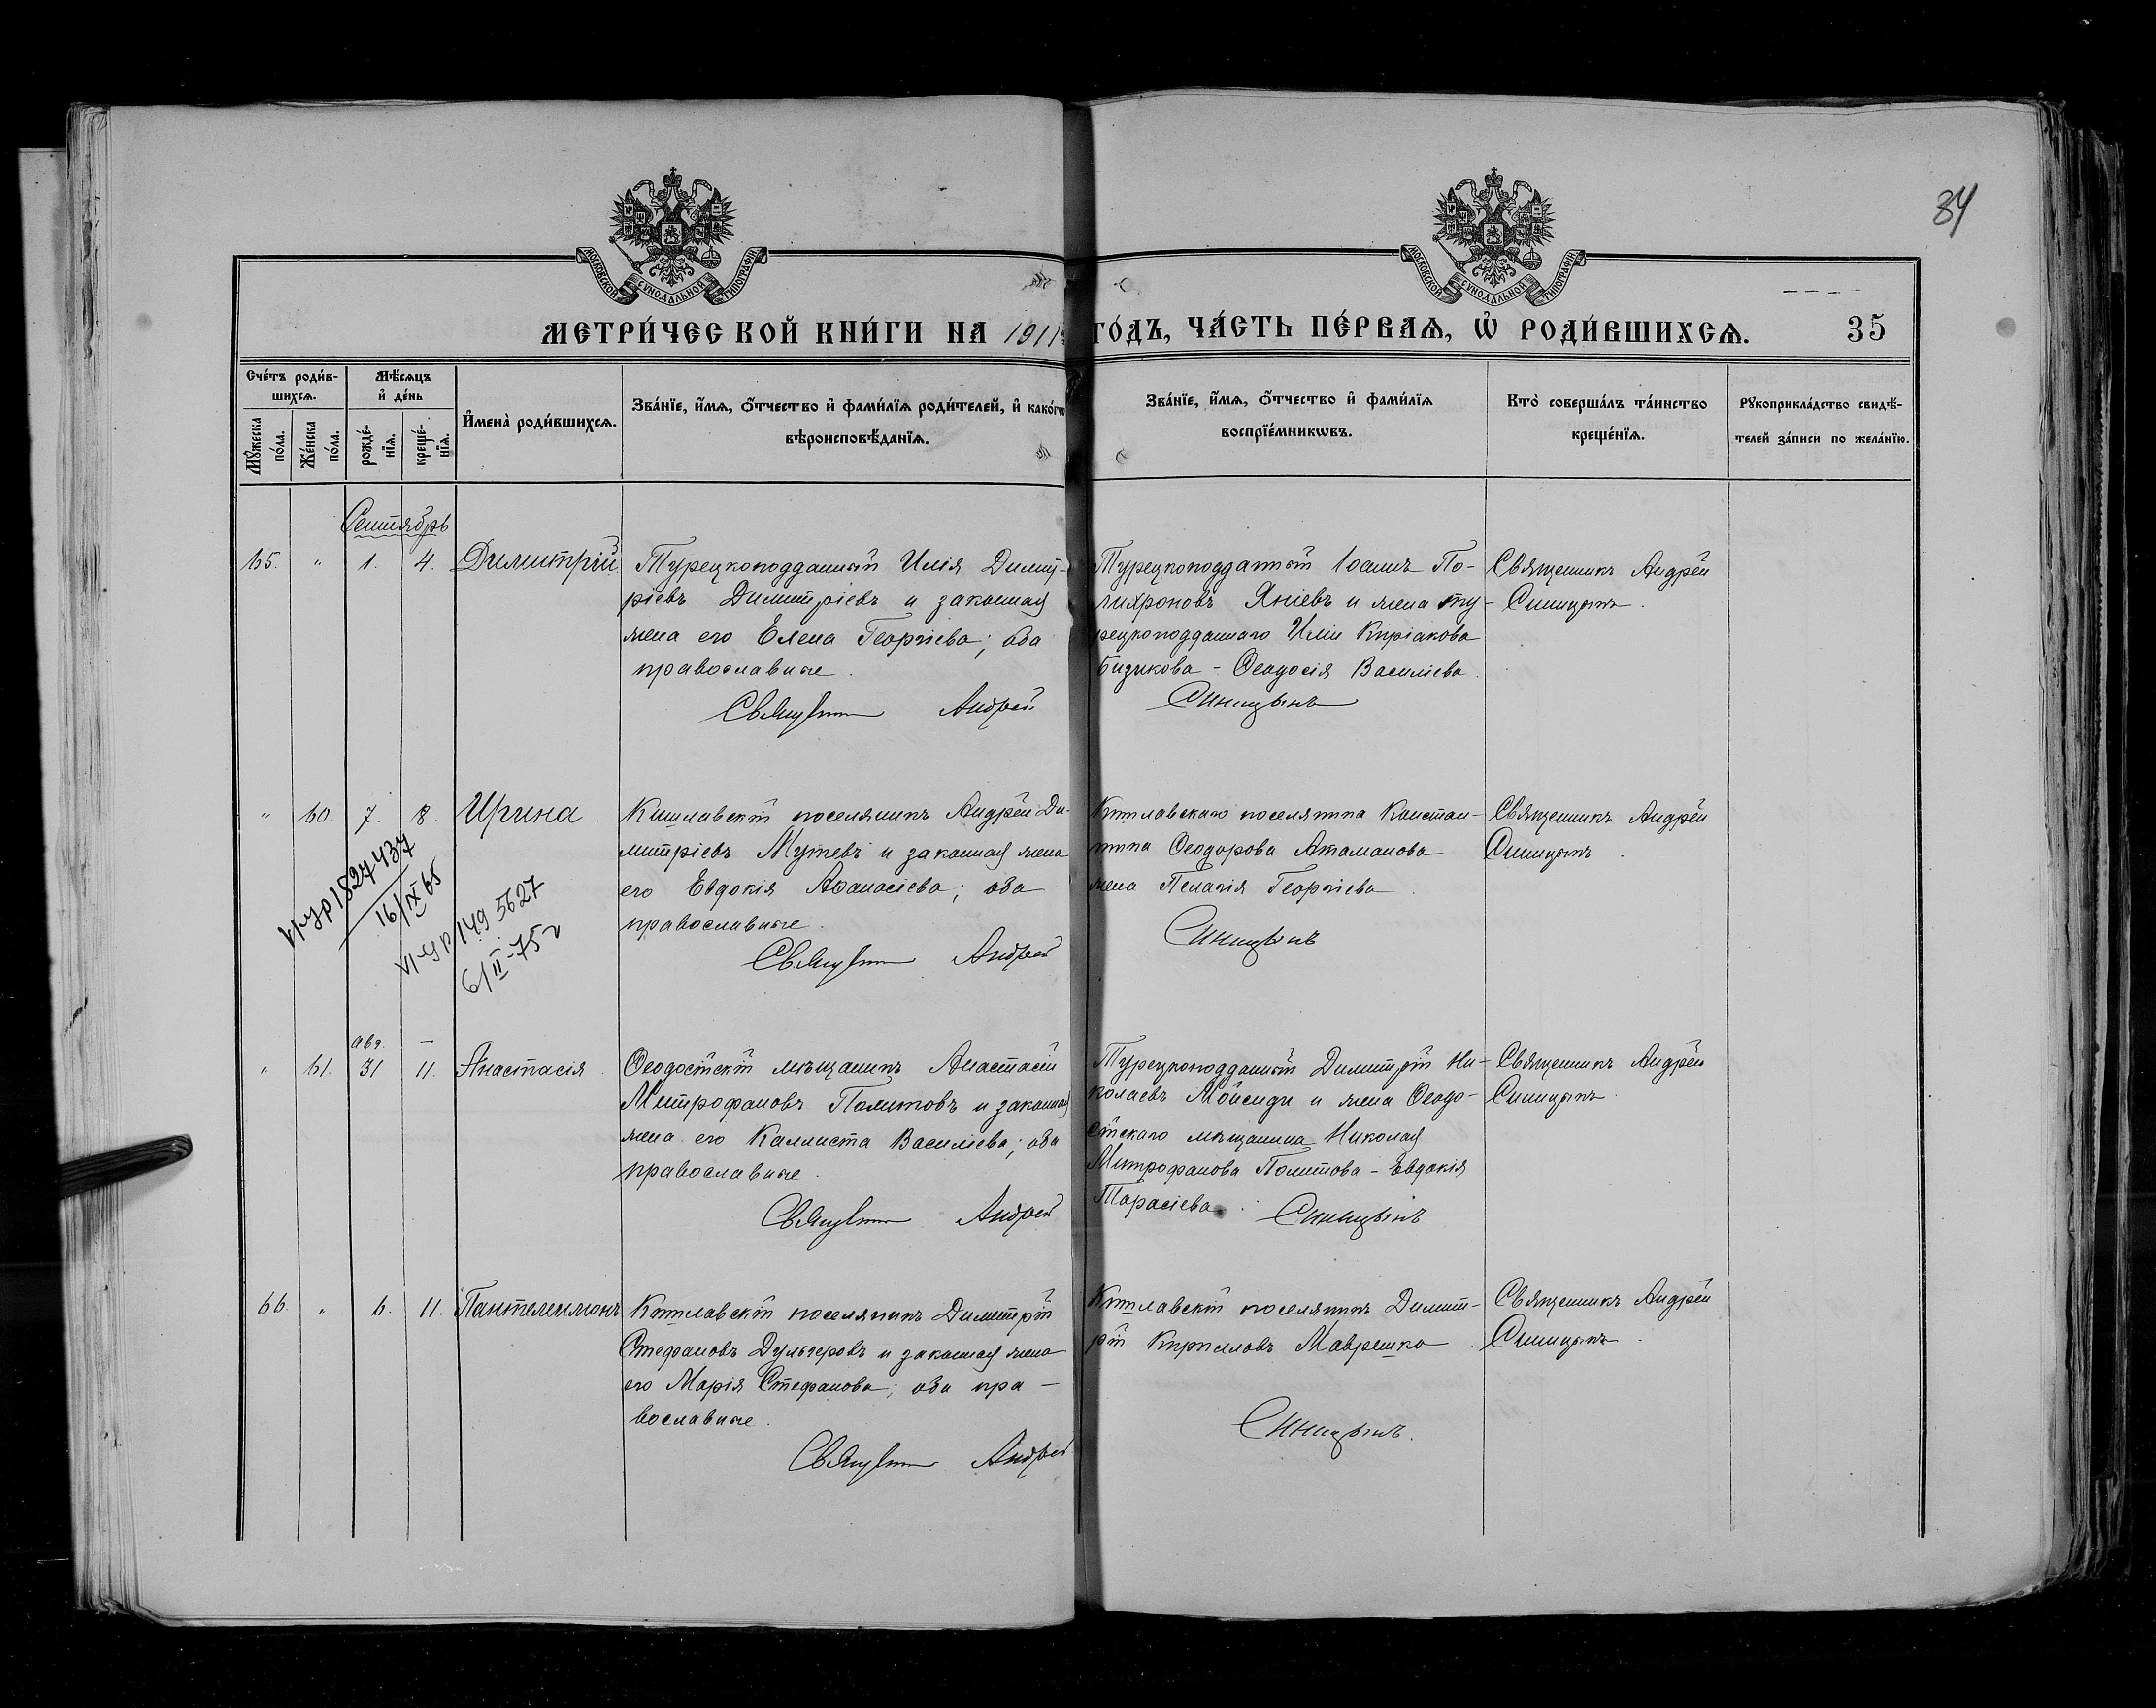 34
МОСКОВСКОЙ СѴНОДАЛЬНОЙ ТИПОГРАФІИ
МОСКОВСКОЙ СѴНОДАЛЬНОЙ ТИПОГРАФІИ
МЕТРИ́ЧЕСКОЙ КНИ́ГИ НА 1911й ГО́ДЪ, ЧА́СТЬ ПЕ́РВАѦ, Ѡ҆ РОДИ́ВШИХСѦ. 35
Сче́тъ роди́в-
шихсѧ.
Мѣ́сѧцъ
и҆ де́нь
Мꙋ́жеска
по́ла.
Же́нска
по́ла.
рожде́-
нїѧ.
креще́-
нїѧ.
И҆мена̀ роди́вшихсѧ.
Зва́нїе, и҆́мѧ, о҆́тчество и҆ фами́лїѧ роди́телей, и҆ како́гѡ
вѣроисповѣ́данїѧ.
Зва́нїе, и҆́мѧ, о҆́тчество и҆ фами́лїѧ
воспрїе́мникѡвъ.
Кто̀ соверша́лъ та́инство
креще́нїѧ.
Рꙋкоприкла́дство свидѣ́-
телей за́писи по жела́нїю.
Сентябрь
65. " 1. 4. Димитрій
Турецкоподданный Илія Димит-
ріевъ Димитріевъ и законная
жена его Елена Георгіева; оба
православные.
Священникъ Андрей
Турецкоподданный Іоаннъ По-
лихроновъ Яніевъ и жена ту-
рецкоподданнаго Иліи Киріакова
Бизикова - Ѳеодосія Василіева.
Синицынъ
Священникъ Андрей
Синицынъ.
" 60. 7. 8. Ирина.
VI-ур 1827437
16/IX 65
VI-ур 149 5627
6/II-75г
Кишлавскій поселянинъ Андрей Ди-
митріевъ Мутевъ и законная жена
его Евдокія Аѳанасіева; оба
православные.
Священникъ Андрей
Кишлавскаго поселянина Констан-
тина Ѳеодорова Атаманова
жена Пелагія Георгіева.
Синицынъ
Священникъ Андрей
Синицынъ.
авг. —
" 61. 31 11. Анастасія.
Ѳеодосійскій мѣщанинъ Анастасій
Митрофановъ Политовъ и законная
жена его Каллиста Василіева; оба
православные.
Священникъ Андрей
Турецкоподданный Димитрій Ни-
колаевъ Мойсиди и жена Ѳеодо-
сійскаго мѣщанина Николая
Митрофанова Политова - Евдокія
Тарасіева.
Синицынъ
Священникъ Андрей
Синицынъ.
66. " 6. 11. Пантелеимонъ
Кишлавскій поселянинъ Димитрій
Стефановъ Дульгеровъ и законная жена
его Марія Стефанова; оба пра-
вославные.
Священникъ Андрей
Кишлавскій поселянинъ Димит-
рій Кирилловъ Маврешко.
Синицынъ.
Священникъ Андрей
Синицынъ.